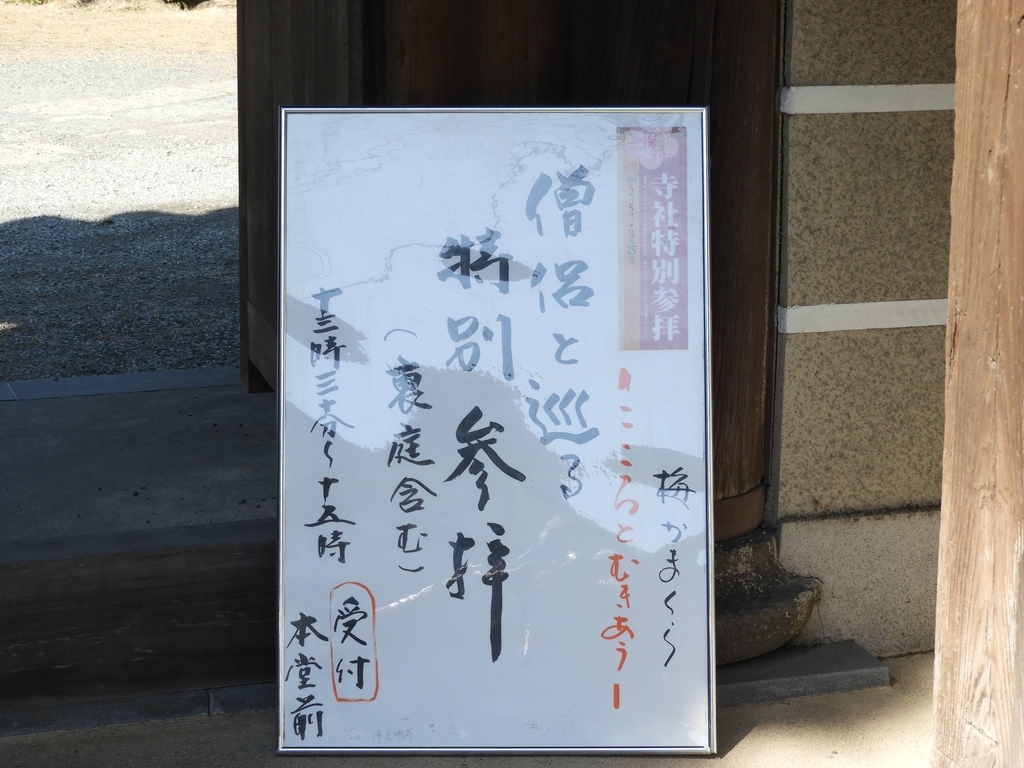 寺社特別参拝
梅かまくら
ーこころとむきあうー
僧侶と巡る
特別参拝
(裏庭含む)
十三時三十分〜十五時
受付
本堂前